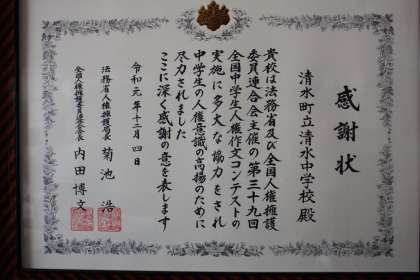 感謝状
清水町立清水中学校 殿
貴校は法務省及び全国人権擁護
委員連合会主催の第三十九回
全国中学生人権作文コンテストの
実施に多大な協力をされ
中学生の人権意識の高揚のために
尽力されました
ここに深く感謝の意を表します
令和元年十二月四日
法務省人権擁護局長 菊池 浩
全国人権擁護委員連合会会長 内田 博文